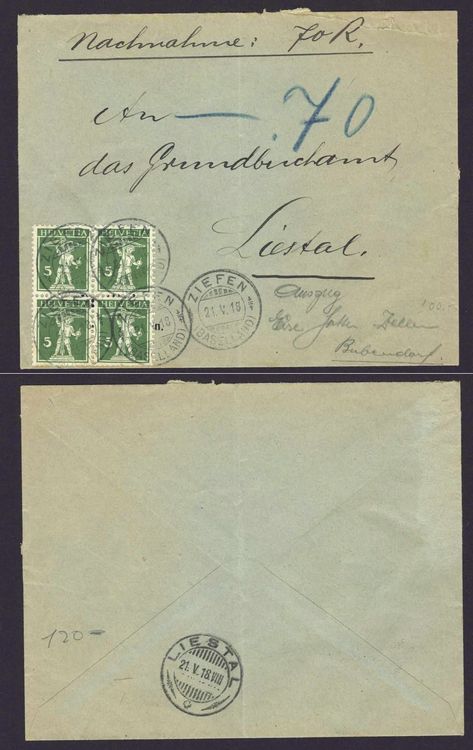 Nachnahme: 70 R.
An — .70
das Grundbuchamt
Liestal.
HELVETIA HELVETIA
5 5
HELVETIA HELVETIA
5 5
ZIEFEN
21.V.18
(BASELLAND)
Auszug
100.-
Bubendorf
120 -
LIESTAL
21.V.18.VIII